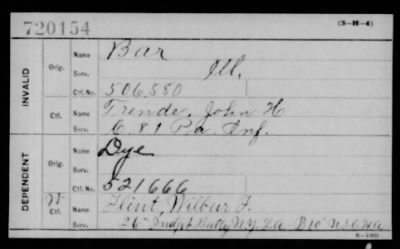 720154 (3-H-4)
INVALID
Orig. Name Bar
Serv. Ill.
Ctf. No. 506,580
Ctf. Name John H
Serv. C. 81 Pa. Inf.
DEPENDENT
Orig. Name Dye
Serv.
Ctf. No. 521666
W Ctf. Name Flint, Wilbur F.
Serv. 26" Indpt Batty N.Y. L.A.